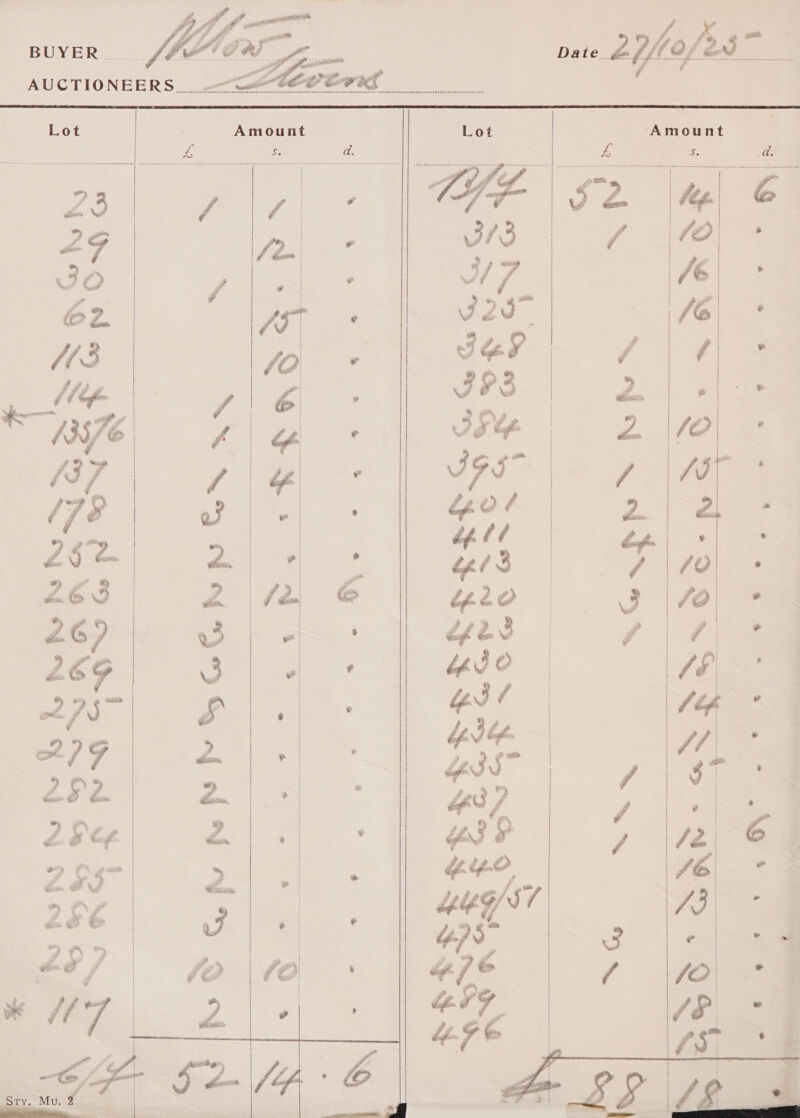 BUYER
Date 27/10/25
AUCTIONEERS Stevens
Lot Amount Lot Amount
£ s. d. £ s. d.
23 1 1 -
29 12 -
30 1 - -
62 15 -
113 10 -
114 1 6 -
* 135/6 1 4 -
137 1 4 -
178 3 - -
252 2 - -
263 2 12 6
267 3 - -
269 3 - -
275 8 - -
279 2 - -
282 2 - -
284 2 - -
285 2 - -
286 3 - -
287 10 10 -
* 117 2 - -
C/F 52 14 . 6
B/F 52 14 6
313 1 10 -
317 16 -
325 16 -
348 1 1 -
383 2 - -
384 2 10 -
395 1 15 -
401 2 2 -
411 4 - -
413 1 10 -
420 3 10 -
423 1 1 -
430 18 -
431 14 -
434 11 -
435 1 5 -
437 1 - -
438 1 12 6
440 16 -
449/51 13 -
475 3 - -
476 1 10 -
489 18 -
496 15 -
£ 88 18 -
Sty. Mu. 2